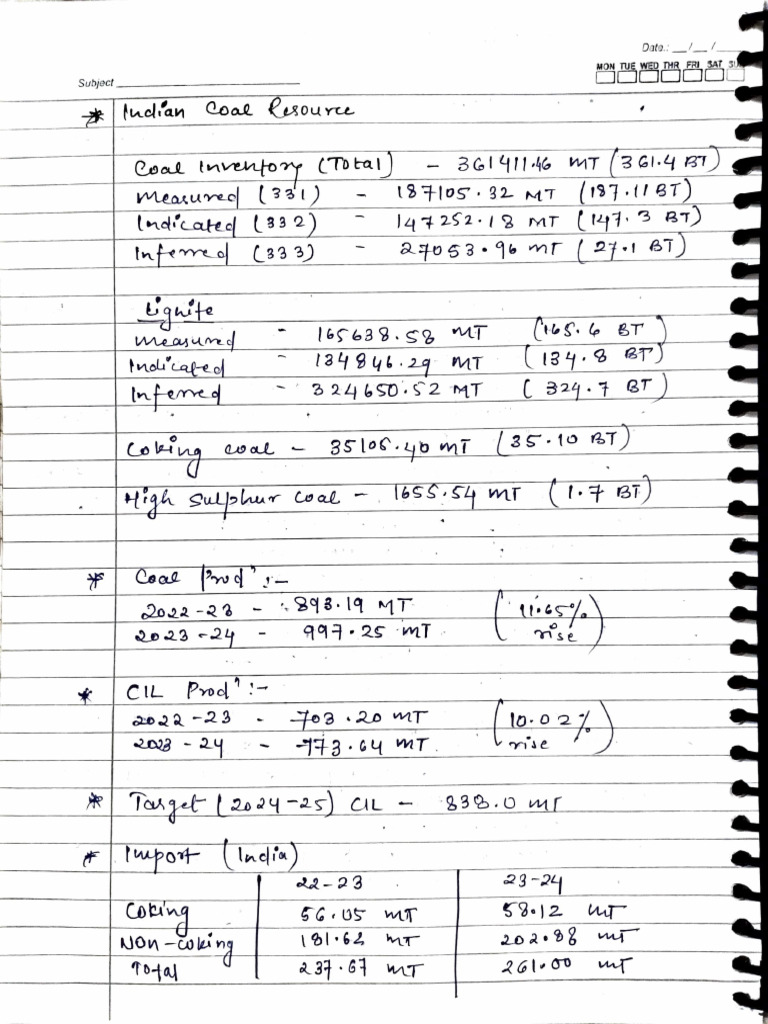 Date.: __/__/__
MON TUE WED THR FRI SAT SU
Subject
* Indian Coal Resource
Coal Inventory (Total) - 361411.46 MT (361.4 BT)
Measured (331) - 187105.32 MT (187.11 BT)
Indicated (332) - 147252.18 MT (147.3 BT)
Inferred (333) - 27053.96 MT (27.1 BT)
Lignite
Measured - 165638.58 MT (165.6 BT)
Indicated - 134846.29 MT (134.8 BT)
Inferred - 324650.52 MT (324.7 BT)
Coking coal - 35106.40 MT (35.10 BT)
High Sulphur coal - 1655.54 MT (1.7 BT)
* Coal Prodⁿ :-
2022-23 - 893.19 MT (11.65%
2023-24 - 997.25 MT rise)
* CIL Prodⁿ :-
2022-23 - 703.20 MT (10.02%
2023-24 - 773.64 MT rise)
* Target (2024-25) CIL - 838.0 MT
* Import (India)
22-23 23-24
Coking 56.05 MT 58.12 MT
Non-coking 181.62 MT 202.88 MT
Total 237.67 MT 261.00 MT